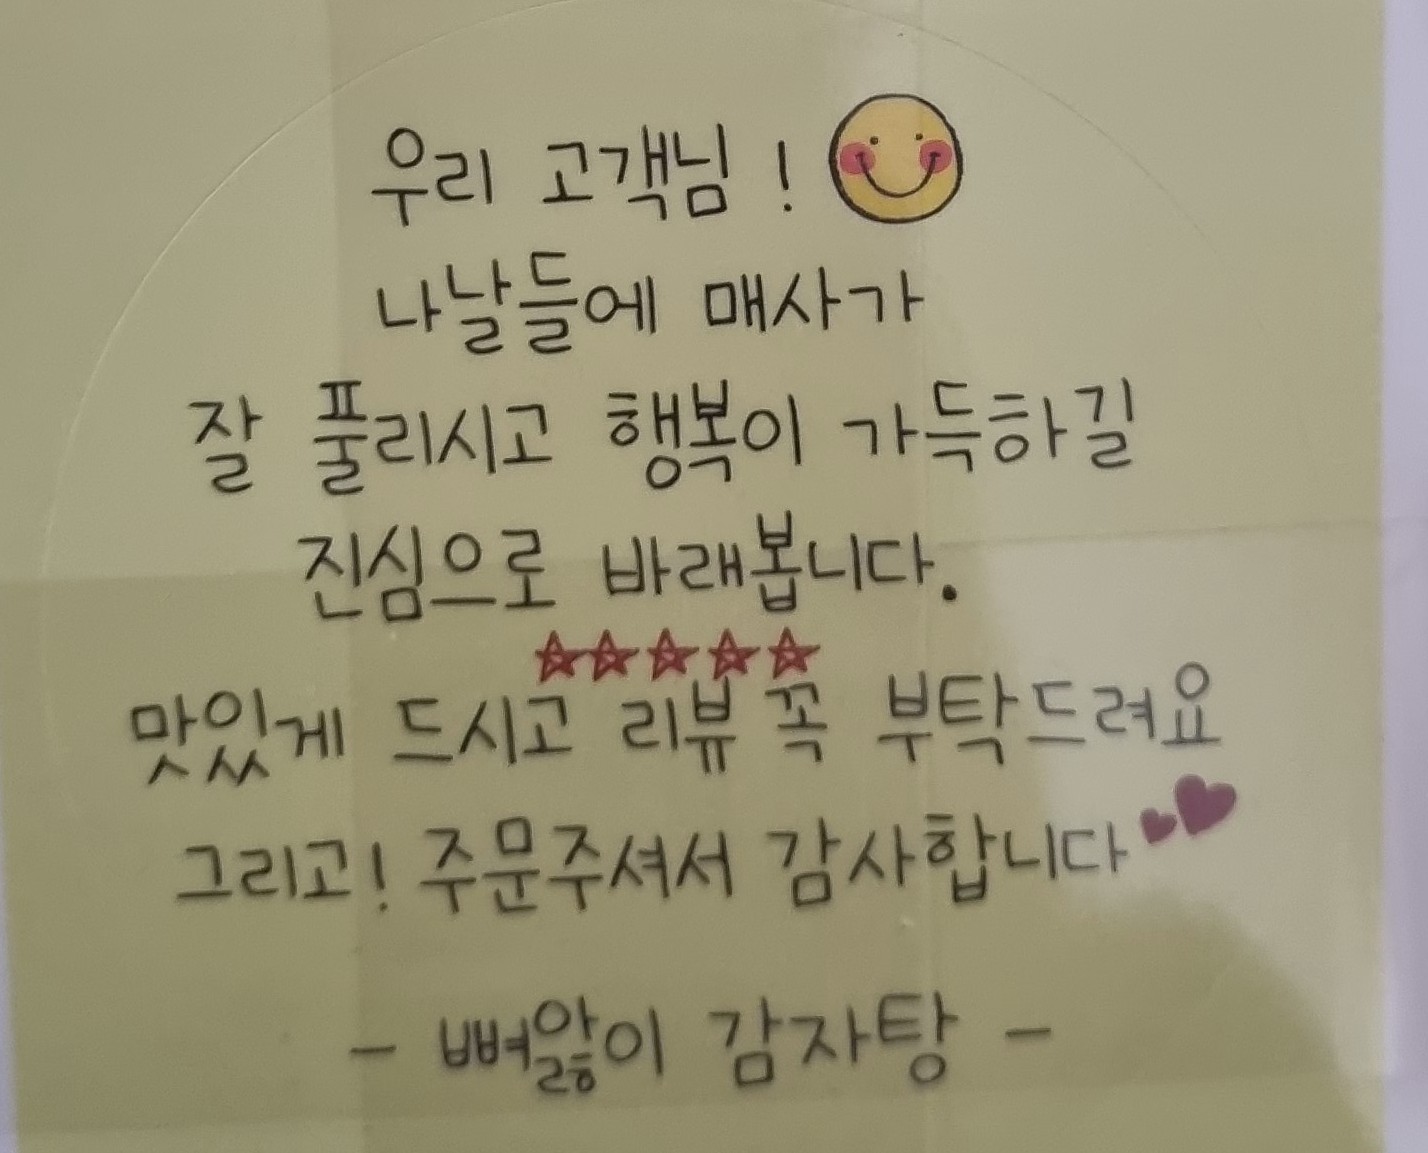 우리 고객님!
나날들에 매사가
잘 풀리시고 행복이 가득하길
진심으로 바래봅니다.
맛있게 드시고 리뷰 꼭 부탁드려요
그리고! 주문주셔서 감사합니다
- 뼈앓이 감자탕 -